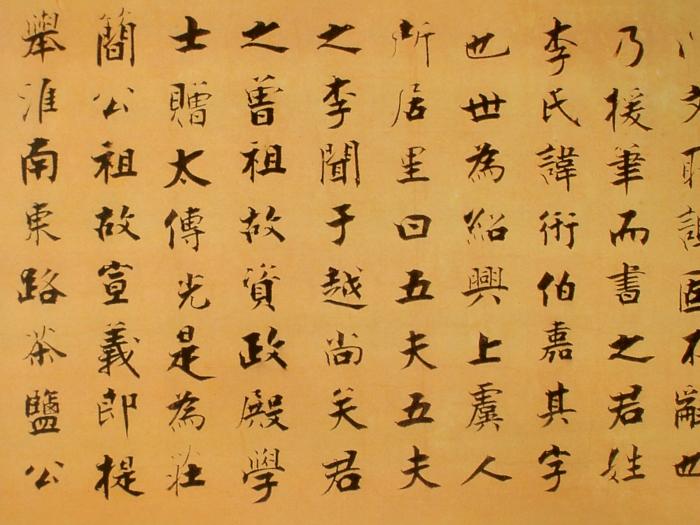 固不辭也
乃援筆而書之君姓
李氏諱術伯嘉其字
也世為紹興上虞人
所居里曰五夫五夫
之李聞于越尚矣君
之曾祖故資政殿學
士贈太傅光是為莊
簡公祖故宣義郎提
舉淮南東路茶鹽公